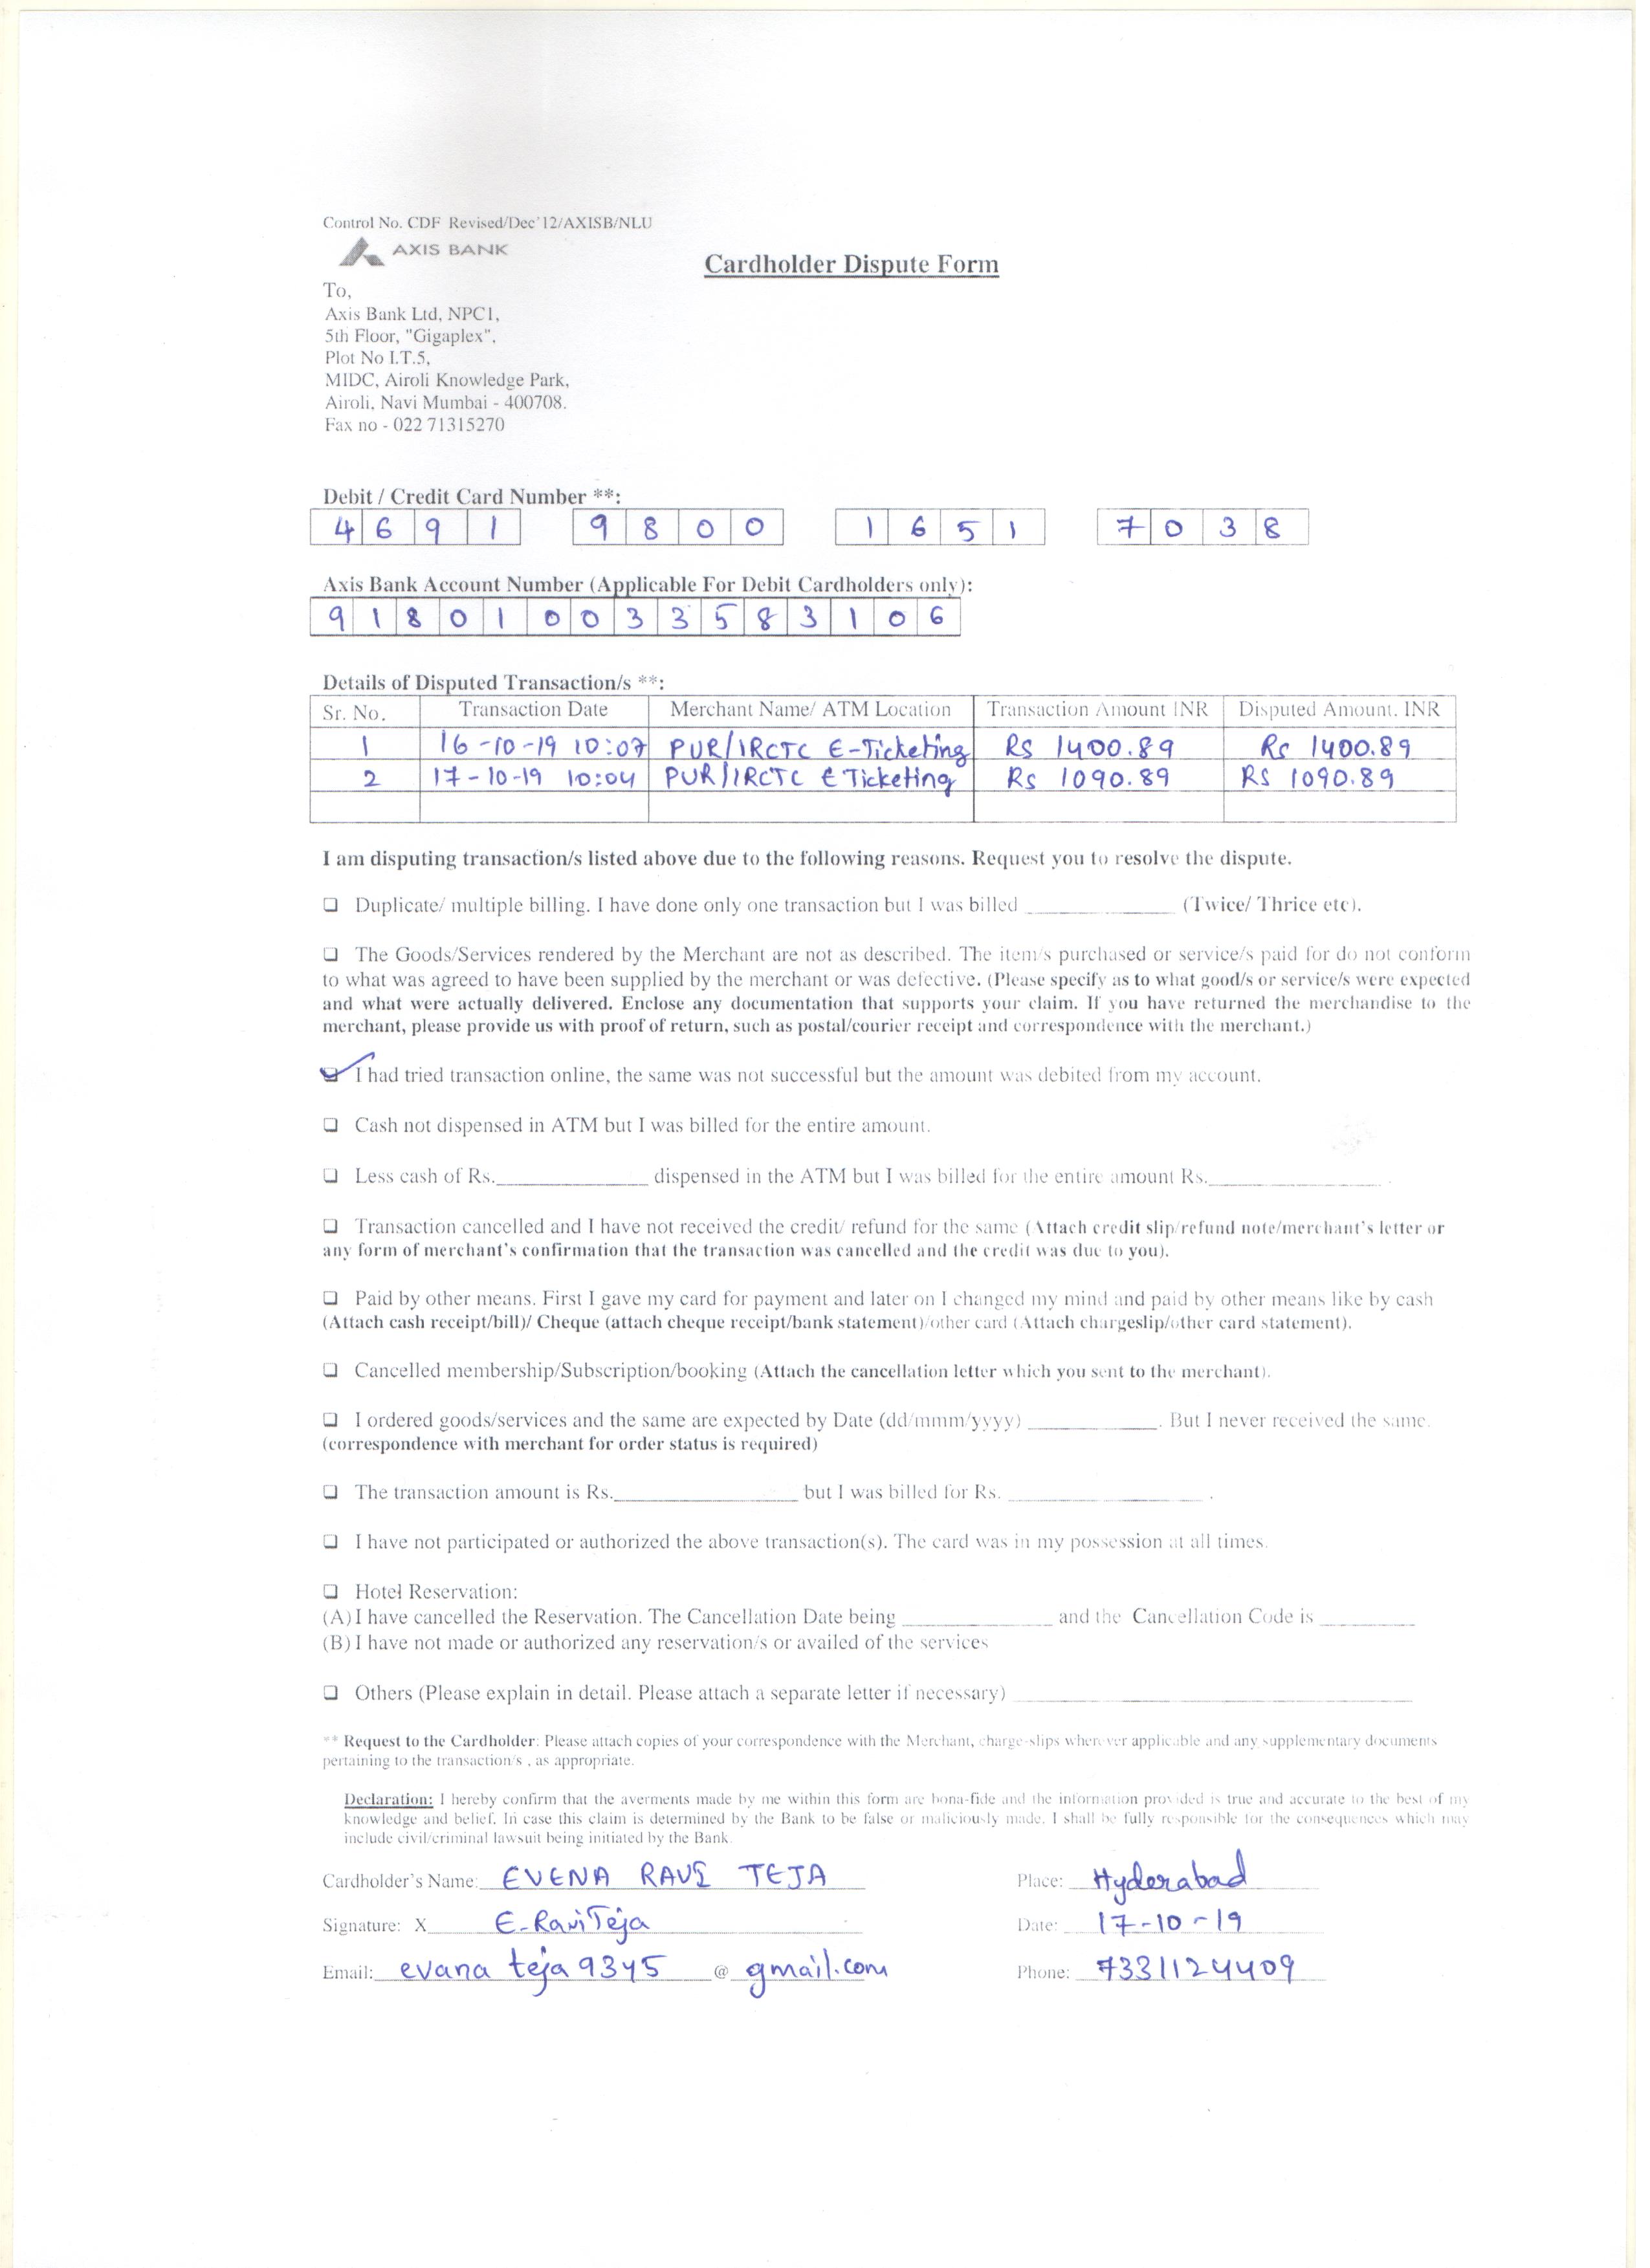 Control No. CDF Revised/Dec'12/AXISB/NLU
AXIS BANK
Cardholder Dispute Form
To,
Axis Bank Ltd, NPC1,
5th Floor, "Gigaplex",
Plot No I.T.5,
MIDC, Airoli Knowledge Park,
Airoli, Navi Mumbai - 400708.
Fax no - 022 71315270
Debit / Credit Card Number **:
4 6 9 1 9 8 0 0 1 6 5 1 7 0 3 8
Axis Bank Account Number (Applicable For Debit Cardholders only):
9 1 8 0 1 0 0 3 3 5 8 3 1 0 6
Details of Disputed Transaction/s **:
Sr. No. Transaction Date Merchant Name/ ATM Location Transaction Amount INR Disputed Amount. INR
1 16-10-19 10:07 PUR/IRCTC E-Ticketing Rs 1400.89 Rs 1400.89
2 17-10-19 10:04 PUR/IRCTC E Ticketing Rs 1090.89 Rs 1090.89
I am disputing transaction/s listed above due to the following reasons. Request you to resolve the dispute.
❏ Duplicate/ multiple billing. I have done only one transaction but I was billed ____________ (Twice/ Thrice etc).
❏ The Goods/Services rendered by the Merchant are not as described. The item/s purchased or service/s paid for do not conform
to what was agreed to have been supplied by the merchant or was defective. (Please specify as to what good/s or service/s were expected
and what were actually delivered. Enclose any documentation that supports your claim. If you have returned the merchandise to the
merchant, please provide us with proof of return, such as postal/courier receipt and correspondence with the merchant.)
✓ I had tried transaction online, the same was not successful but the amount was debited from my account.
❏ Cash not dispensed in ATM but I was billed for the entire amount.
❏ Less cash of Rs.____________ dispensed in the ATM but I was billed for the entire amount Rs.______________ .
❏ Transaction cancelled and I have not received the credit/ refund for the same (Attach credit slip/refund note/merchant's letter or
any form of merchant's confirmation that the transaction was cancelled and the credit was due to you).
❏ Paid by other means. First I gave my card for payment and later on I changed my mind and paid by other means like by cash
(Attach cash receipt/bill)/ Cheque (attach cheque receipt/bank statement)/other card (Attach chargeslip/other card statement).
❏ Cancelled membership/Subscription/booking (Attach the cancellation letter which you sent to the merchant).
❏ I ordered goods/services and the same are expected by Date (dd/mmm/yyyy) __________. But I never received the same.
(correspondence with merchant for order status is required)
❏ The transaction amount is Rs.______________ but I was billed for Rs. ________________ .
❏ I have not participated or authorized the above transaction(s). The card was in my possession at all times.
❏ Hotel Reservation:
(A) I have cancelled the Reservation. The Cancellation Date being ____________ and the Cancellation Code is ________
(B) I have not made or authorized any reservation/s or availed of the services
❏ Others (Please explain in detail. Please attach a separate letter if necessary) ________________________________
** Request to the Cardholder: Please attach copies of your correspondence with the Merchant, charge-slips wherever applicable and any supplementary documents
pertaining to the transaction/s , as appropriate.
Declaration: I hereby confirm that the averments made by me within this form are bona-fide and the information provided is true and accurate to the best of my
knowledge and belief. In case this claim is determined by the Bank to be false or maliciously made, I shall be fully responsible for the consequences which may
include civil/criminal lawsuit being initiated by the Bank.
Cardholder's Name: EVENA RAVI TEJA Place: Hyderabad
Signature: X E-RaviTeja Date: 17-10-19
Email: evana teja9345 @ gmail.com Phone: 7331124409